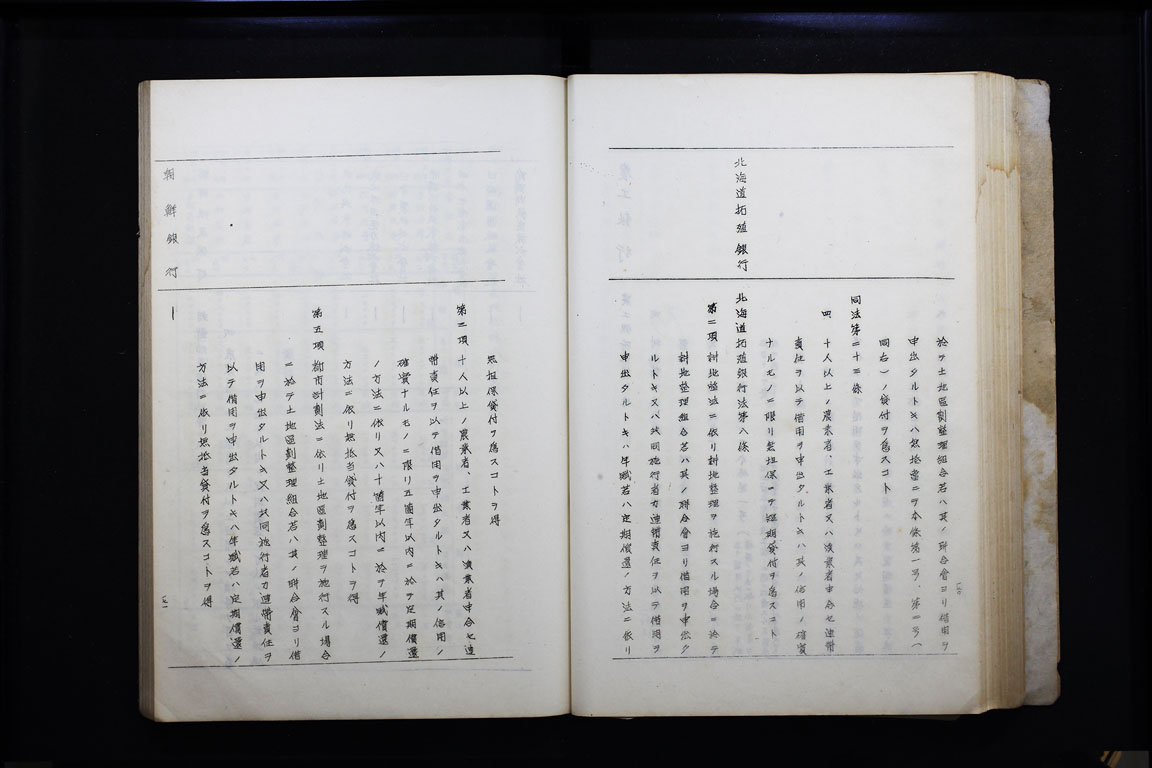 於テ土地區劃整理組合若ハ其ノ聯合會ヨリ借用ヲ
申出タルトキハ無抵當ニテ本條第一号、第二号(
同右)ノ貸付ヲ爲スコト
同法第二十三條
四 十人以上ノ農業者、工業者又ハ漁業者申合セ連帶
責任ヲ以テ借用ヲ申出タルトキハ其ノ信用ノ確實
ナルモノニ限リ無担保ニテ短期貸付ヲ爲スコト
北海道拓殖銀行
北海道拓殖銀行法第八條
第二項 耕地整理法ニ依リ耕地整理ヲ施行スル場合ニ於テ
耕地整理組合若ハ其ノ聯合會ヨリ借用ヲ申出タ
ルトキ又ハ共同施行者カ連帶責任ヲ以テ借用ヲ
申出タルトキハ年賦若ハ定期償還ノ方法ニ依リ
無担保貸付ヲ爲スコトヲ得
第三項 十人以上ノ農業者、工業者又ハ漁業者申合セ連
帶責任ヲ以テ借用ヲ申出タルトキハ其ノ信用ノ
確實ナルモノニ限リ五箇年以内ニ於テ定期償還
ノ方法ニ依リ又ハ十箇年以内ニ於テ年賦償還ノ
方法ニ依リ無抵當貸付ヲ爲スコトヲ得
第五項 都市計劃法ニ依リ土地區劃整理ヲ施行スル場合
ニ於テ土地區劃整理組合若ハ其ノ聯合會ヨリ借
用ヲ申出タルトキ又ハ共同施行者カ連帶責任ヲ
以テ借用ヲ申出タルトキハ年賦若ハ定期償還ノ
方法ニ依リ無抵当貸付ヲ爲スコトヲ得
朝鮮銀行 ー